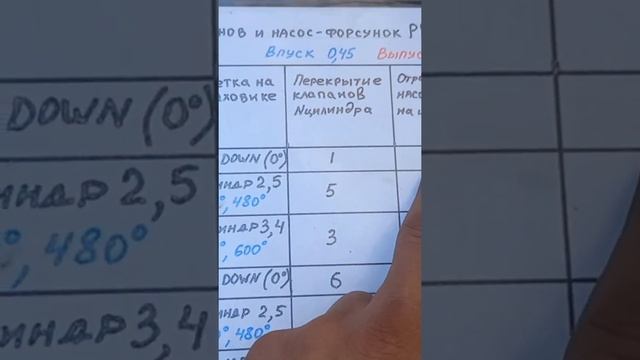 нов и насос-форсунок
Впуск 0,45 Выпус
етка на
ховике
Перекрытие
клапанов
Nцилиндра
Отр
насо
на ц
DOWN (0°) 1
индр 2,5
°, 480° 5
индр 3,4
°, 600° 3
DOWN (0°) 6
индр 2,5
°, 480°
DOWN (0°)
индр 2,5
°, 480°
индр 3,4